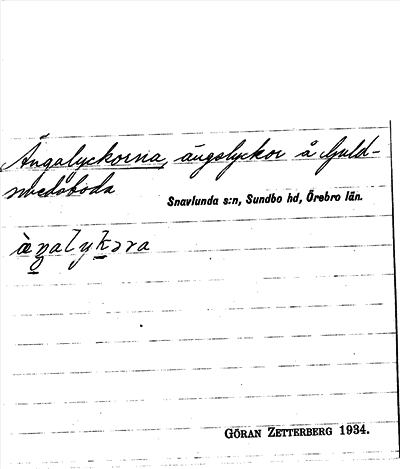 Ängalyckorna, ängslyckor å Guld-
smedsboda
Snavlunda s:n, Sundbo hd, Örebro län.
GÖRAN ZETTERBERG 1934.